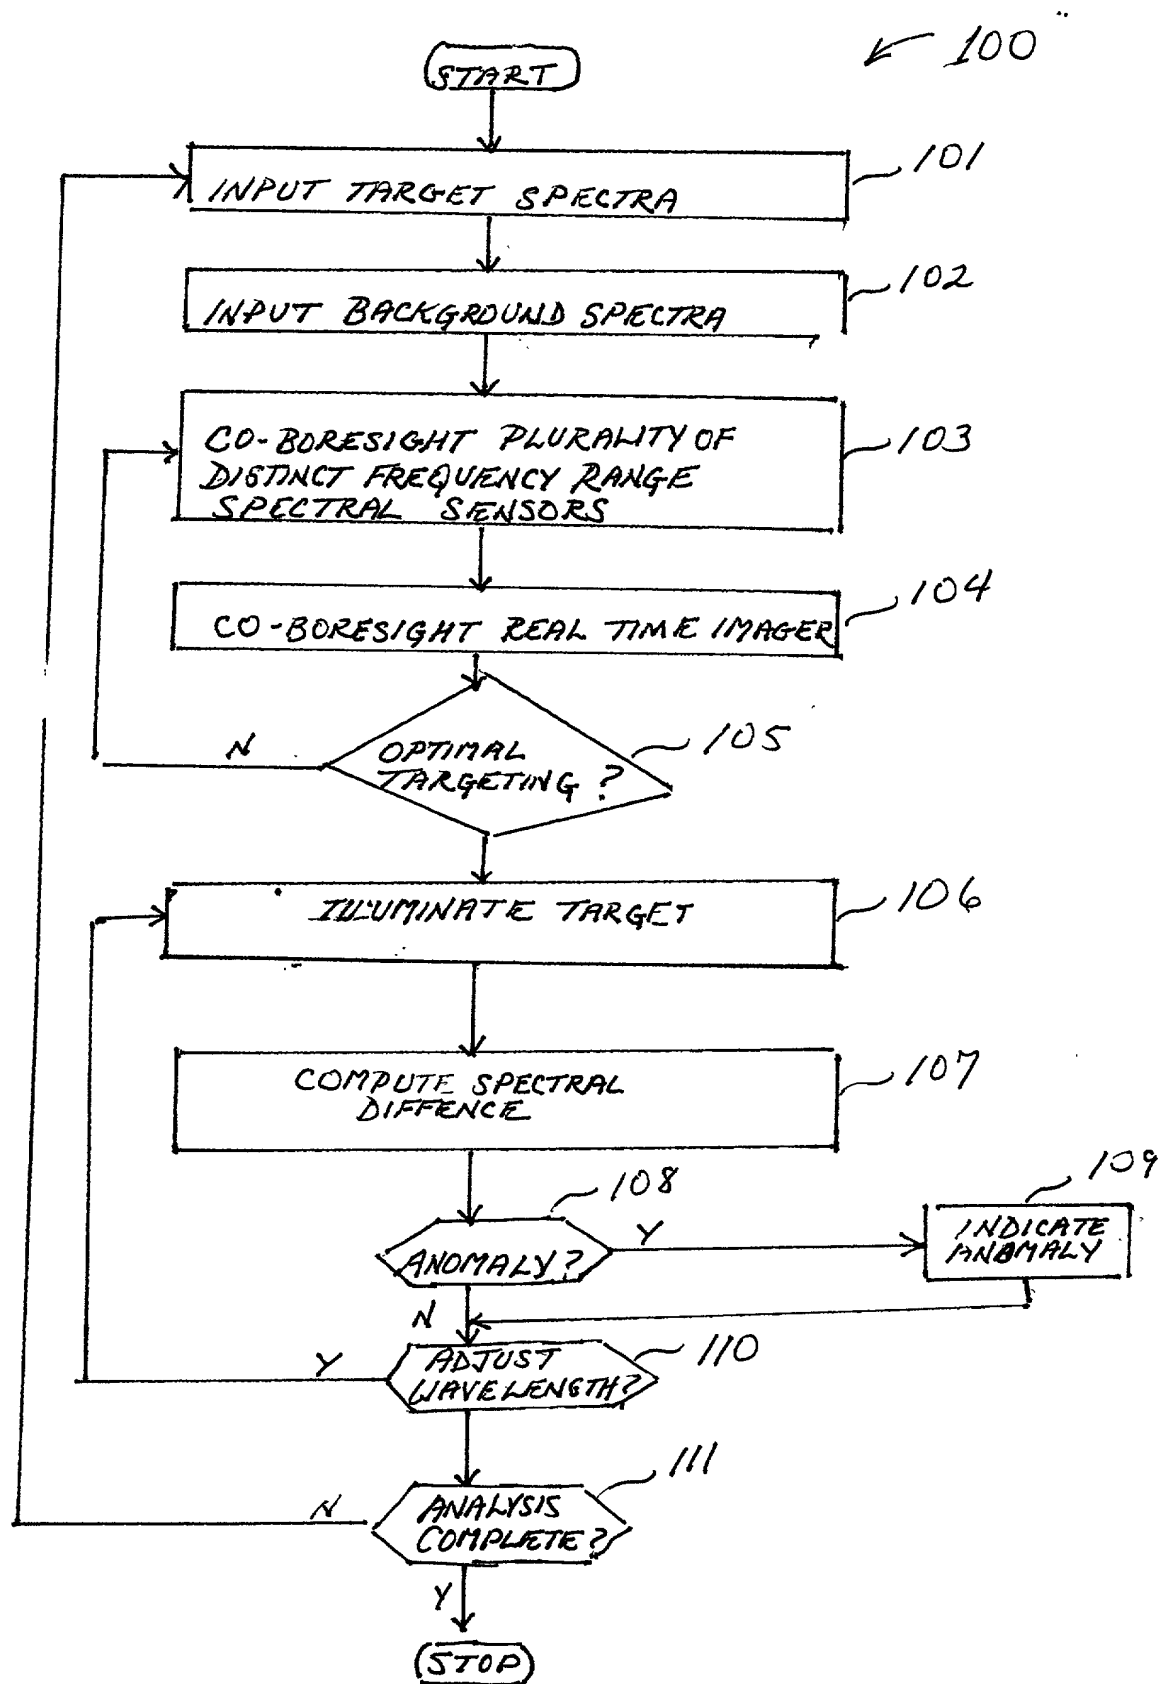 100
START
101
INPUT TARGET SPECTRA
102
INPUT BACKGROUND SPECTRA
103
CO-BORESIGHT PLURALITY OF
DISTINCT FREQUENCY RANGE
SPECTRAL SENSORS
104
CO-BORESIGHT REAL TIME IMAGER
105
N
OPTIMAL
TARGETING?
106
ILLUMINATE TARGET
107
COMPUTE SPECTRAL
DIFFENCE
108
109
ANOMALY?
Y
INDICATE
ANOMALY
N
110
Y
ADJUST
WAVELENGTH?
111
N
ANALYSIS
COMPLETE?
Y
STOP